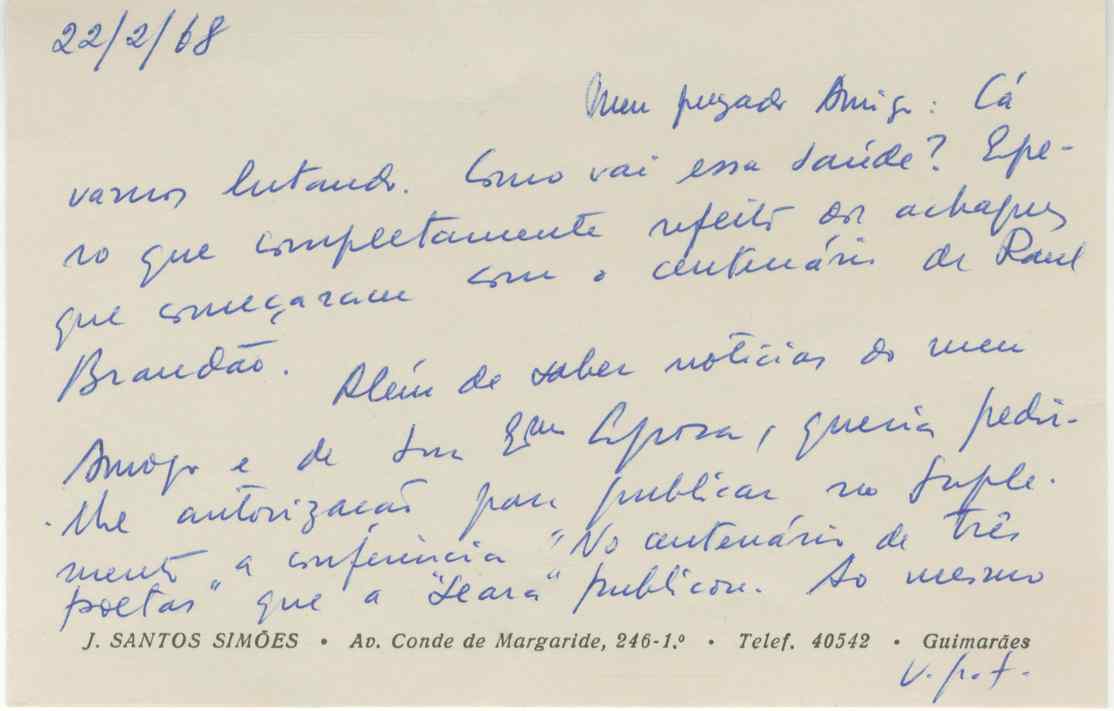 22/2/68
Meu prezado Amigo: Cá
vamos lutando. Como vai essa saúde? Espe-
ro que completamente refeito dos achaques
que começaram com o centenário de Raul
Brandão. Além de saber notícias do meu
Amigo e de sua Exma Esposa, queria pedir-
-lhe autorização para publicar no Suple-
mento a conferência "No centenário de três
poetas" que a "Seara" publicou. Ao mesmo
J. SANTOS SIMÕES • Av. Conde de Margaride, 246-1.º • Telef. 40542 • Guimarães
V. p. f.